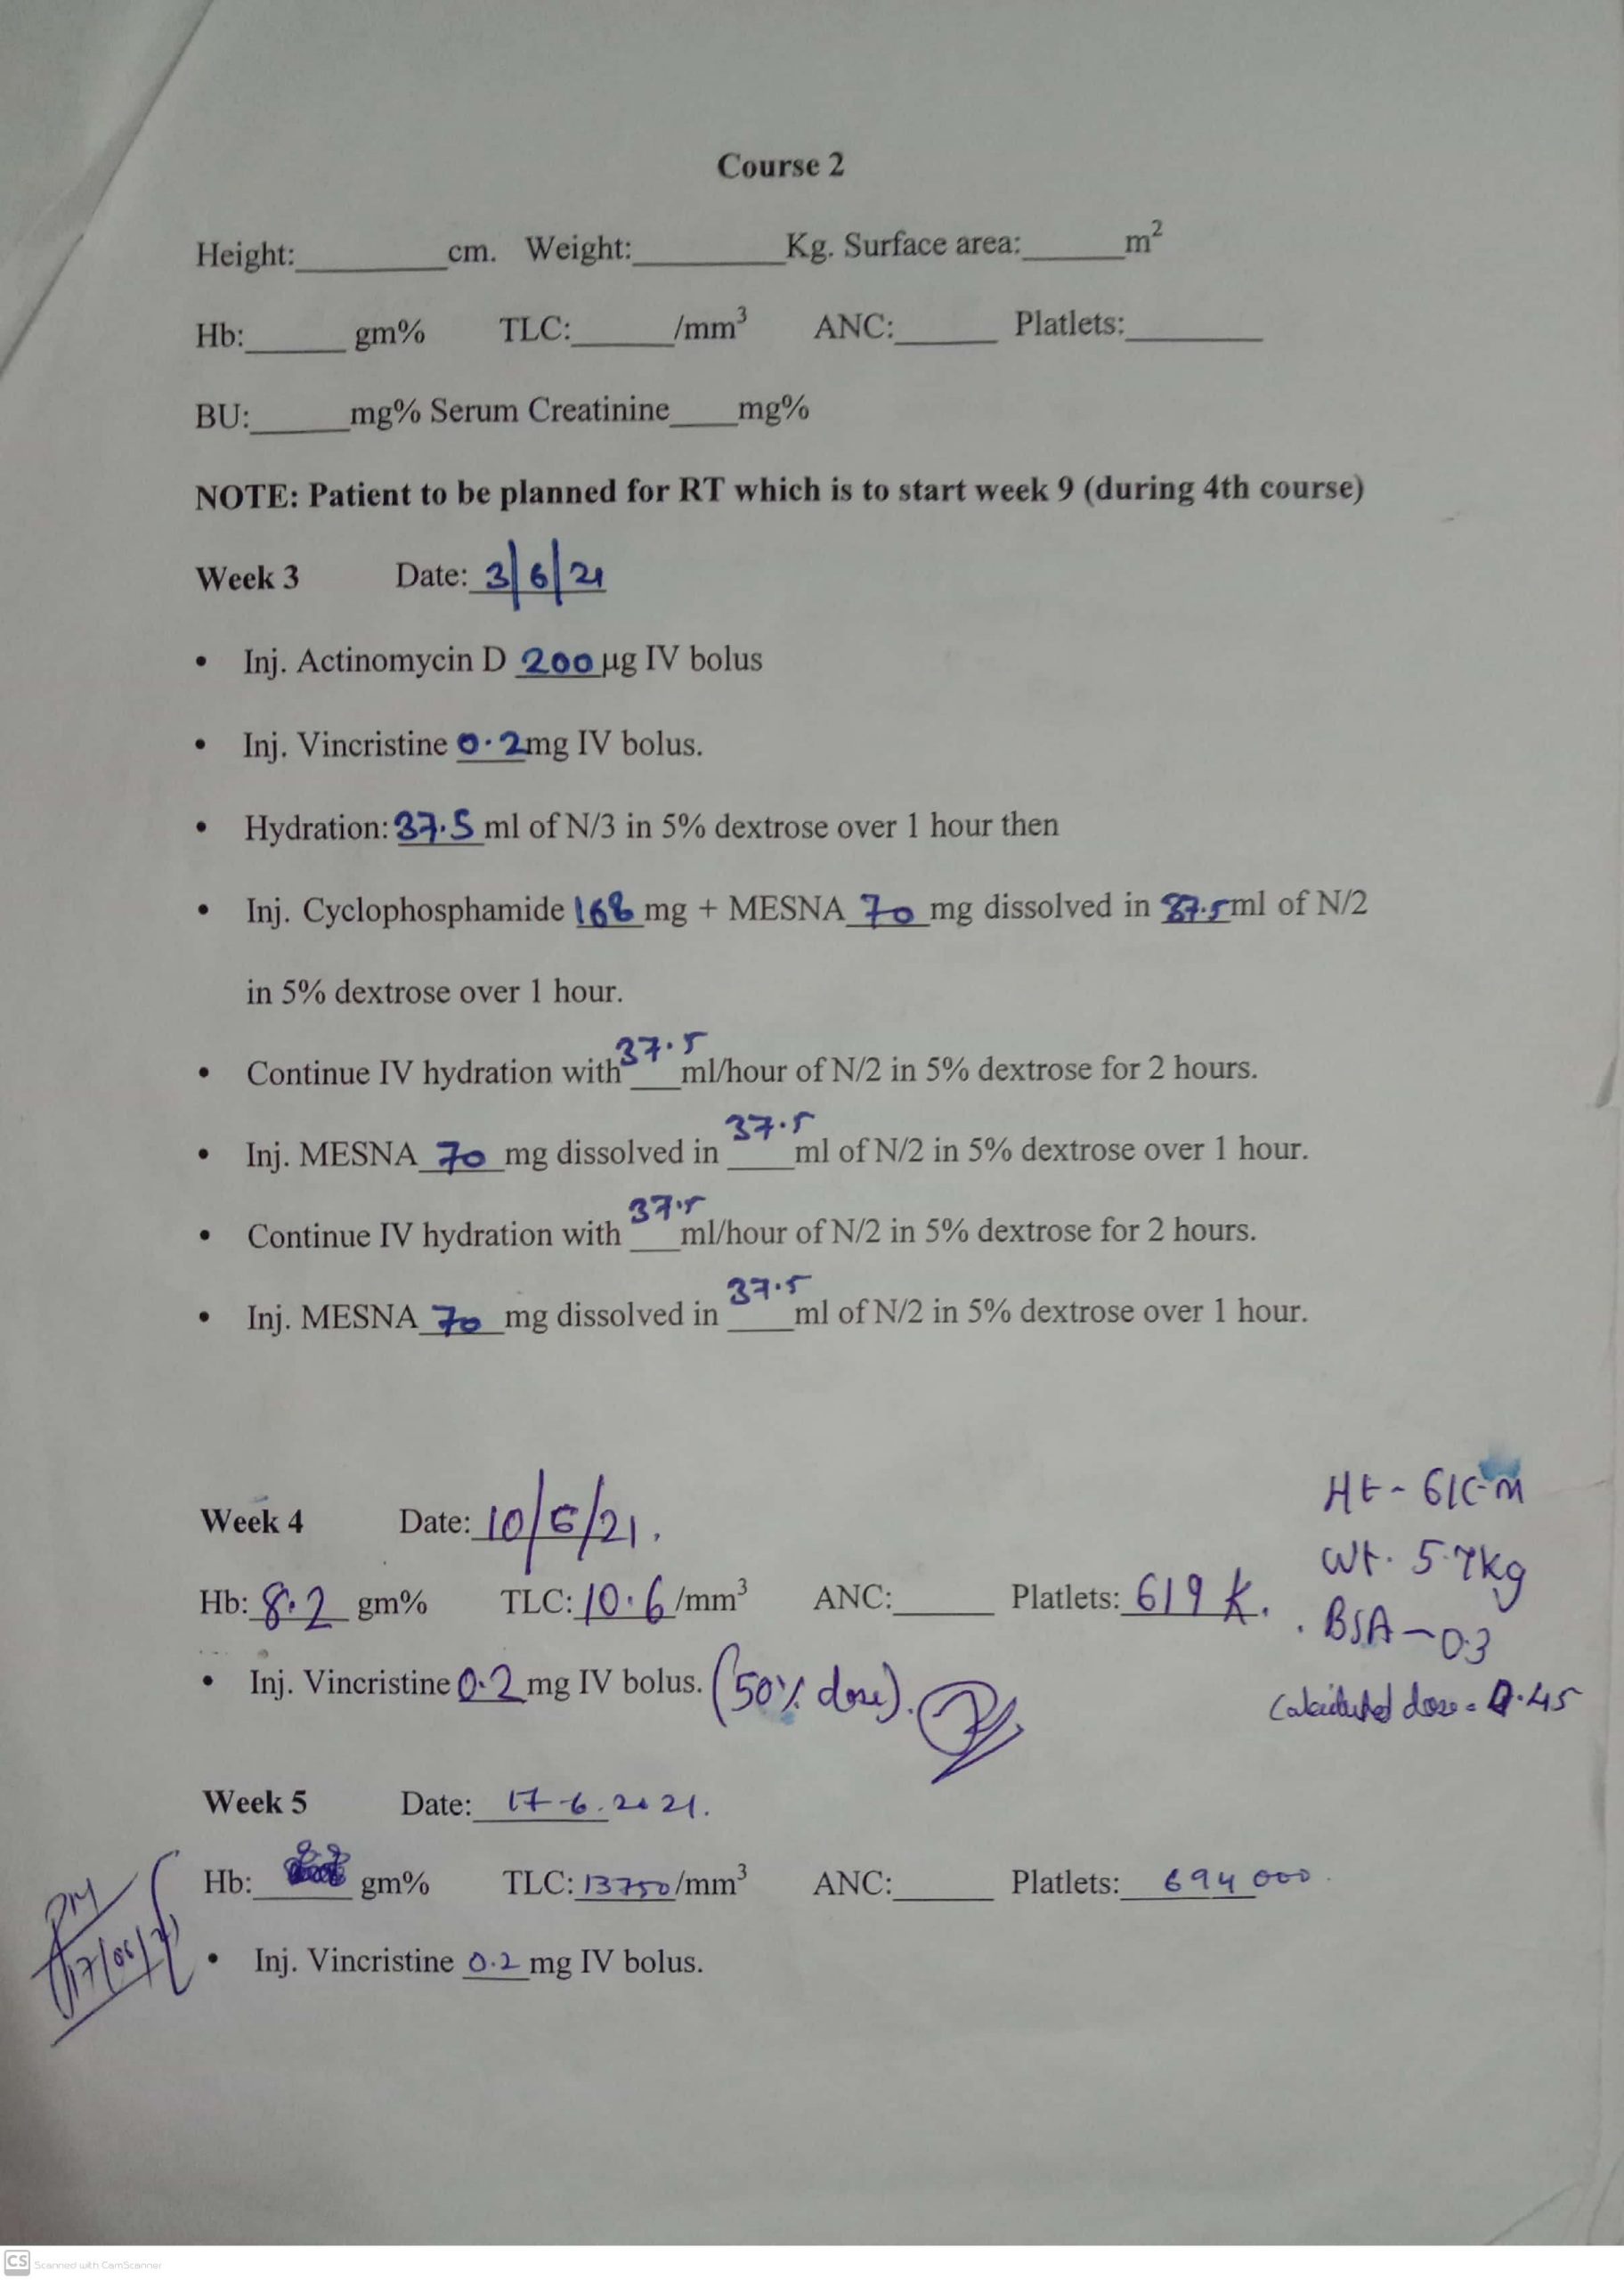 Course 2
Height:________cm. Weight:________Kg. Surface area:_____m²
Hb:_____ gm% TLC:_____/mm³ ANC:_____ Platlets:_______
BU:_____mg% Serum Creatinine____mg%
NOTE: Patient to be planned for RT which is to start week 9 (during 4th course)
Week 3 Date: 3/6/21
• Inj. Actinomycin D 200 µg IV bolus
• Inj. Vincristine 0.2mg IV bolus.
• Hydration: 37.5 ml of N/3 in 5% dextrose over 1 hour then
• Inj. Cyclophosphamide 168 mg + MESNA 70 mg dissolved in 37.5ml of N/2
in 5% dextrose over 1 hour.
• Continue IV hydration with 37.5 ml/hour of N/2 in 5% dextrose for 2 hours.
• Inj. MESNA 70 mg dissolved in 37.5 ml of N/2 in 5% dextrose over 1 hour.
• Continue IV hydration with 37.5 ml/hour of N/2 in 5% dextrose for 2 hours.
• Inj. MESNA 70 mg dissolved in 37.5 ml of N/2 in 5% dextrose over 1 hour.
Ht - 61cm
Week 4 Date: 10/6/21.
Wt. 5.7kg
Hb: 8.2 gm% TLC: 10.6 /mm³ ANC:_____ Platlets: 619 K.
BSA - 0.3
• Inj. Vincristine 0.2 mg IV bolus. (50% dose).
Calculated dose = 0.45
Week 5 Date: 17-6.2021.
Hb: gm% TLC: 13750/mm³ ANC:_____ Platlets: 694000
17/06/21
• Inj. Vincristine 0.2 mg IV bolus.
CS Scanned with CamScanner